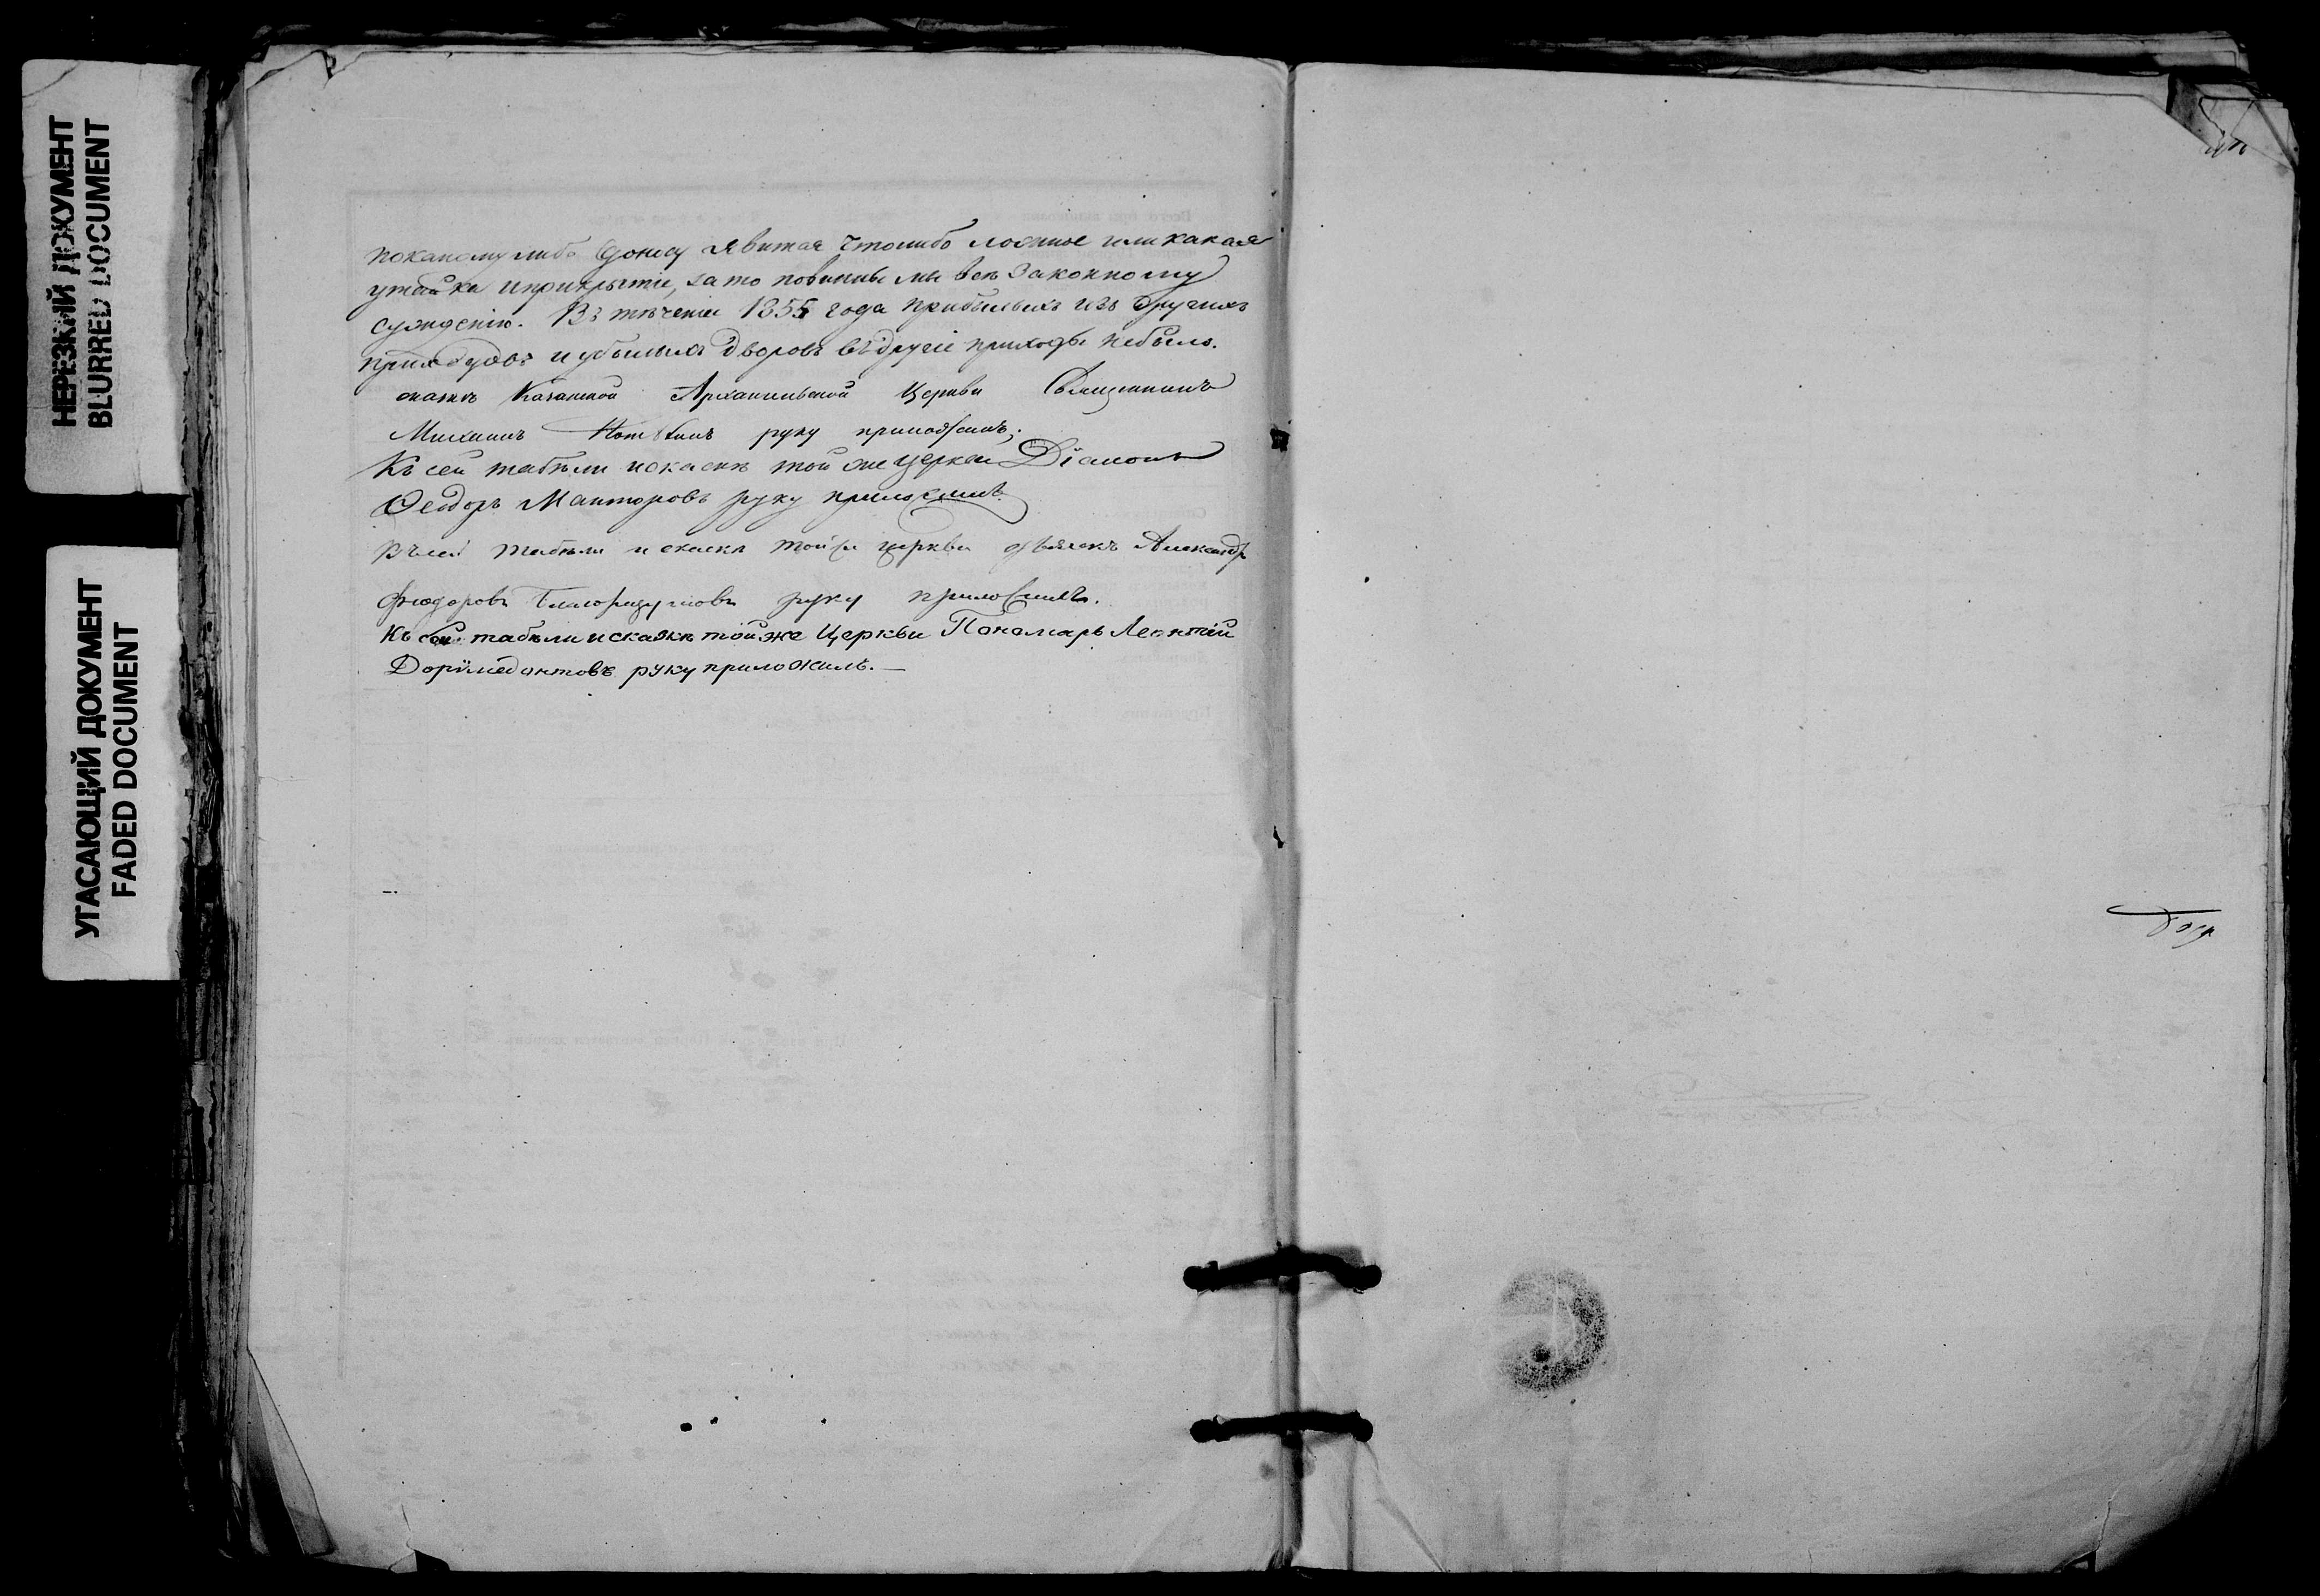 НЕРЕЗКИЙ ДОКУМЕНТ
BLURRED DOCUMENT
УГАСАЮЩИЙ ДОКУМЕНТ
FADED DOCUMENT
покакому либо доносу явится чтолибо ложное или какая
утайка и прикрытіе, за то повинны мы всѣ законному
сужденію. Въ теченіи 1855 года прибылыхъ изъ другихъ
приходовъ и убылыхъ дворовъ въ другіе приходы небыло.
Архангельской Церкви Священникъ
Михаилъ руку приложилъ;
Къ сей табели искаскѣ той же церкви Діаконъ
Ѳеодоръ Мантуровъ руку приложилъ.
Къ сей табели и скаскѣ тойже церкви дьячекъ Александръ
Феодоровъ Благоразумовъ руку приложилъ.
Къ сей табѣли искаскѣ тойже Церкви Пономарь Леонтій
Доримедонтовъ руку приложилъ. —